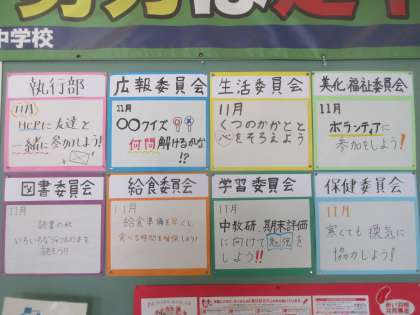 中学校
執行部
11月
MCPに友達と
一緒に参加しよう!
広報委員会
11月
〇〇クイズ
何問解けるかな
!?
生活委員会
11月
くつのかかとと
心をそろえよう
美化福祉委員会
11月
ボランティアに
参加をしよう!
図書委員会
11月
読書の秋
いろいろなジャンルの本を
読もう!!
給食委員会
11月
給食準備を早くし、
食べる時間を確保しよう!
学習委員会
11月
中教研、期末評価
に向けて勉強を
しよう!!
保健委員会
11月
寒くても換気に
協力しよう!